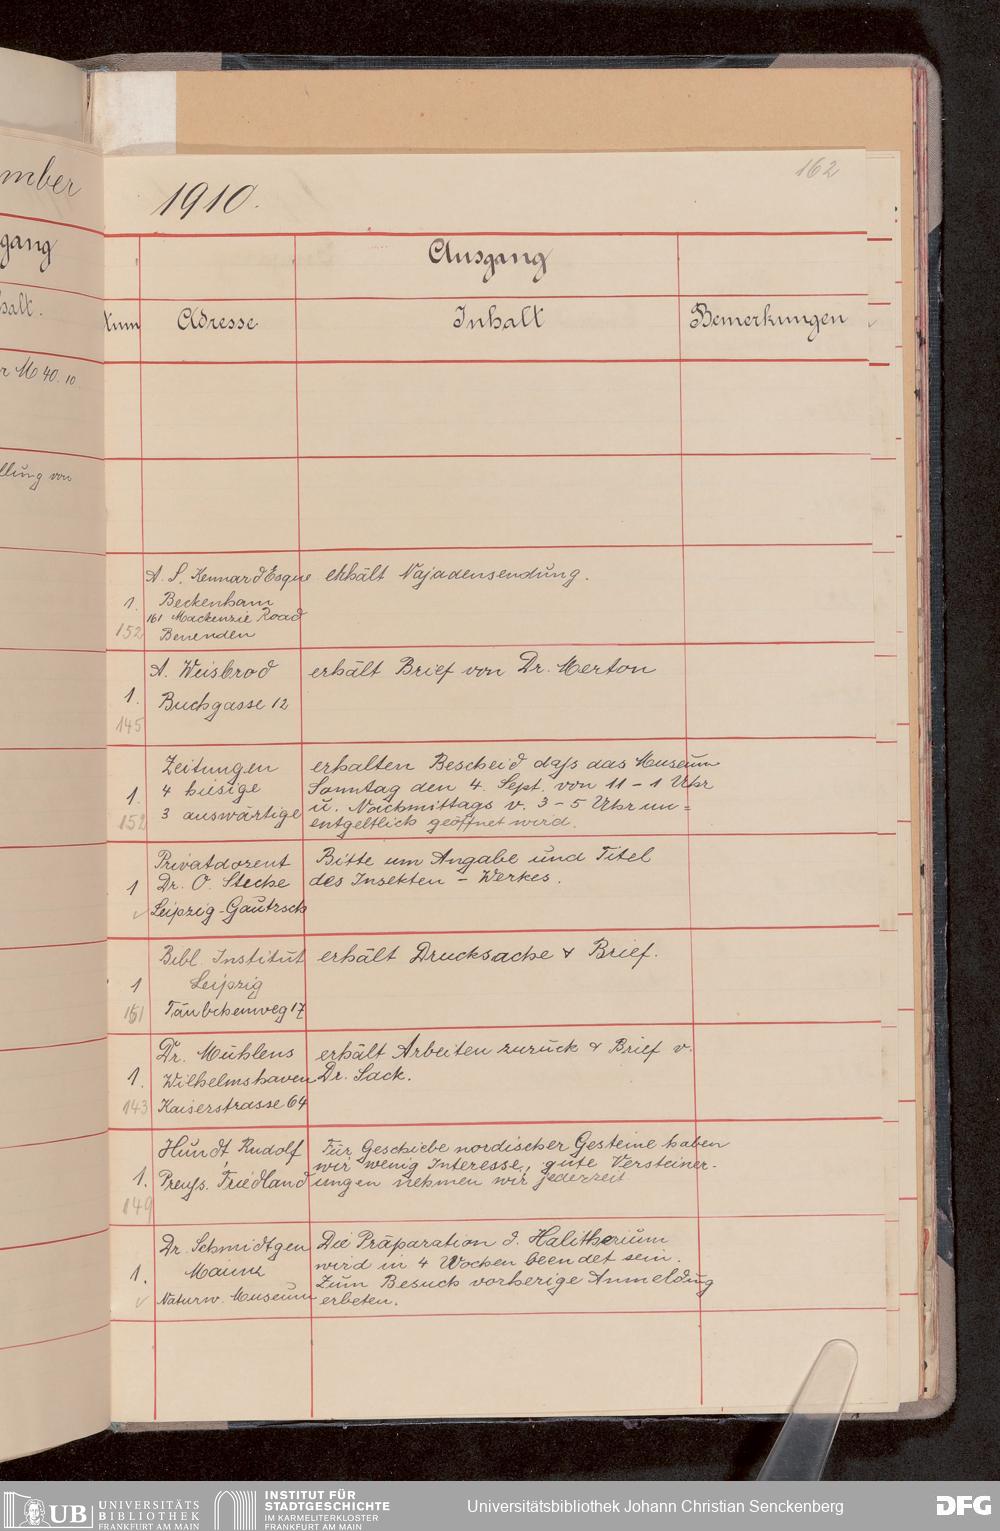 mber
gang
halt.
r M 40.10
llung von
162
1910.
Ausgang
Num
Adresse
Inhalt
Bemerkungen
A. S. Kennard Esque
erhält Najadensendung.
1.
Beckenham
161 Mackenzie Road
152
Benenden
A. Weisbrod
erhält Brief von Dr. Merton
1.
Buchgasse 12
145
Zeitungen
4 hiesige
3 auswärtige
1.
152
erhalten Bescheid daß das Museum
Sonntag den 4. Sept. von 11 - 1 Uhr
u. Nachmittags v. 3 - 5 Uhr un=
entgeltlich geöffnet wird.
Privatdozent
Dr. O. Steche
Leipzig-Gautzsch
1
Bitte um Angabe und Titel
des Insekten - Werkes.
Bibl. Institut
Leipzig
Täubchenweg 17
1
151
erhält Drucksache & Brief.
Dr. Mühlens
Wilhelmshaven
Kaiserstrasse 64
1.
143
erhält Arbeiten zurück & Brief v.
Dr. Sack.
Hundt, Rudolf
Preuß. Friedland
1.
149
Für Geschiebe nordischer Gesteine haben
wir wenig Interesse, gute Versteiner-
ungen nehmen wir jederzeit
Dr. Schmidtgen
Mainz
Naturw. Museum
1.
Die Präparation d. Halitherium
wird in 4 Wochen beendet sein.
Zum Besuch vorherige Anmeldung
erbeten.
UB
UNIVERSITÄTS
BIBLIOTHEK
FRANKFURT AM MAIN
INSTITUT FÜR
STADTGESCHICHTE
IM KARMELITERKLOSTER
FRANKFURT AM MAIN
Universitätsbibliothek Johann Christian Senckenberg
DFG